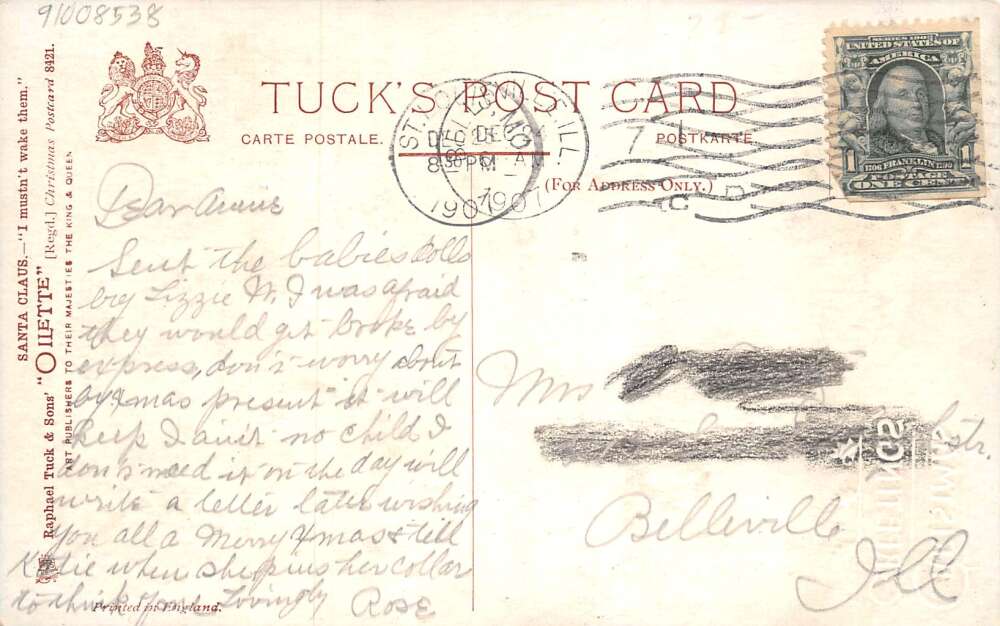 91008538
TUCK'S POST CARD
CARTE POSTALE.
POSTKARTE.
(FOR ADDRESS ONLY.)
SERIES 1902
UNITED STATES OF
AMERICA
1706 FRANKLIN 1790
POSTAGE
1 ONE CENT
BELLEVILLE, ILL.
DEC
1907
ST. LOUIS, MO.
DEC 25
8 30 PM
1907
7
C D
SANTA CLAUS.—"I mustn't wake them."
Raphael Tuck & Sons' "OILETTE" [Regd.] Christmas Postcard 8421.
ART PUBLISHERS TO THEIR MAJESTIES THE KING & QUEEN
Dear Annie
Sent the babies dolls
by Lizzie W. I was afraid
they would get broke by
express, don't worry about
my Xmas present it will
keep I ain't no child I
don't need it on the day will
write a letter later wishing
you all a Merry Xmas & tell
Katie when she pins her collar
to think of me Lovingly
Rose
Mrs
str.
Belleville
Ill
Printed in England.